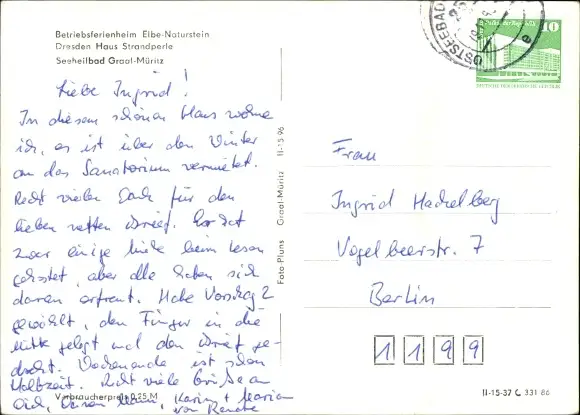 Betriebsferienheim Elbe-Naturstein
Dresden Haus Strandperle
Seeheilbad Graal-Müritz
Liebe Ingrid!
In diesem schönen Haus wohne
ich, es ist über den Winter
an das Sanatorium vermietet.
Recht vielen Dank für den
lieben netten Brief. Er hat
zwar einige Mühe beim Lesen
gekostet, aber alle haben sich
daran erfreut. Habe Vorschlag 2
gewählt, den Finger in die
Mitte gelegt und den Brief ge-
dreht. Wochenende ist schon
Halbzeit. Recht viele Grüße an
Dich, Deinen Mann, Karin + Marion
von Renate
Verbraucherpreis 0,25 M
Foto Pluns Graal-Müritz II-15 96
OSTSEEBAD
DEUTSCHE DEMOKRATISCHE REPUBLIK
10
Frau
Ingrid Hackelberg
Vogelbeerstr. 7
Berlin
1199
II-15-37 C 331 86